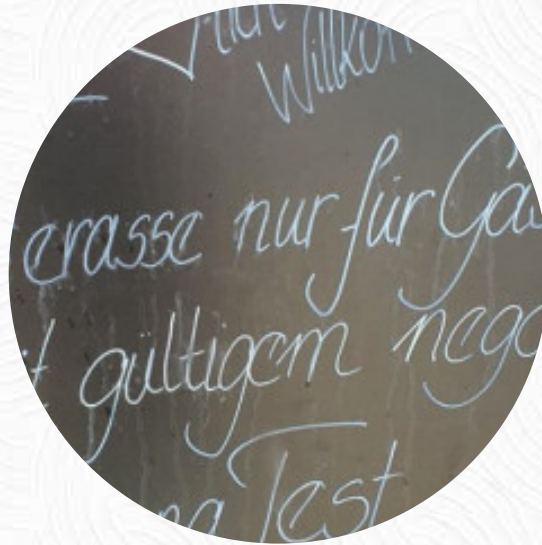 Willkom
erasse nur für Gä
t gültigem nega
na Test